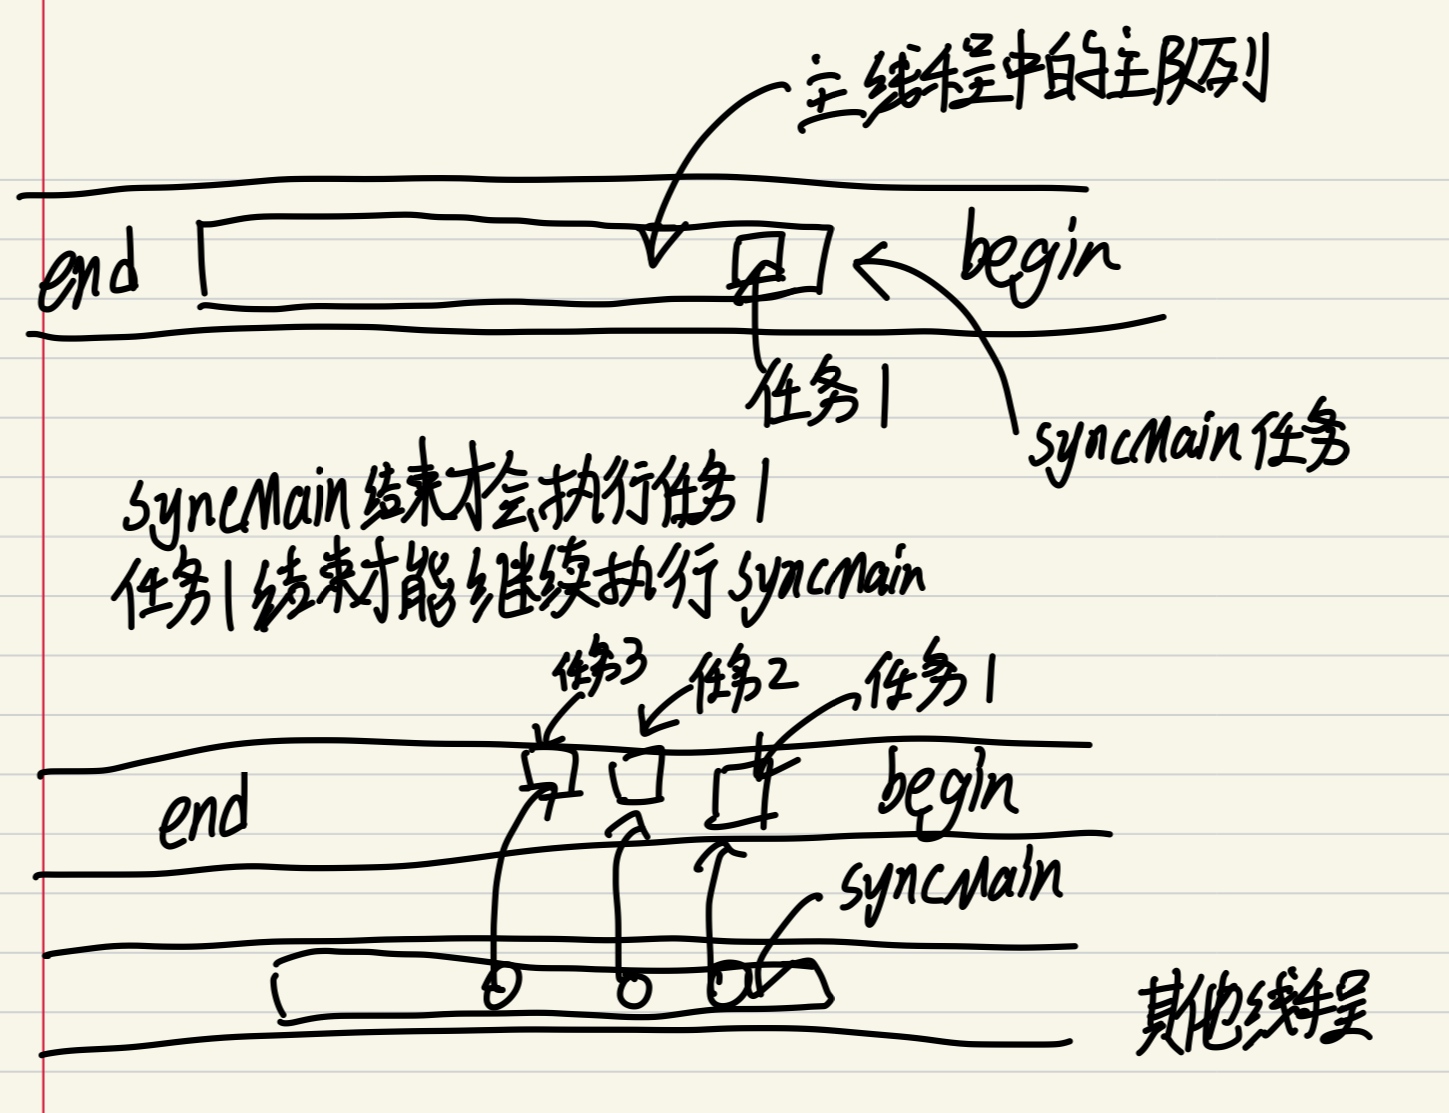 主线程中的主队列
end
begin
任务1
syncMain任务
syncMain结束才会执行任务1
任务1结束才能继续执行syncMain
任务3
任务2
任务1
end
begin
syncMain
其他线程